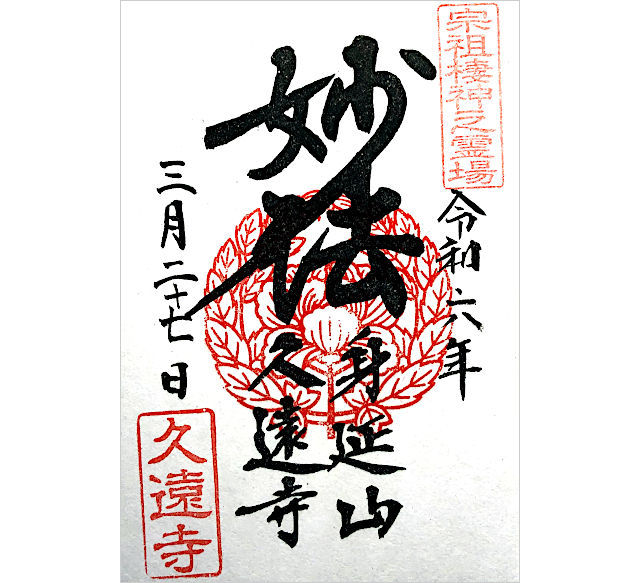 宗祖棲神之霊場
令和六年
妙法
身延山
久遠寺
三月二十七日
久遠寺